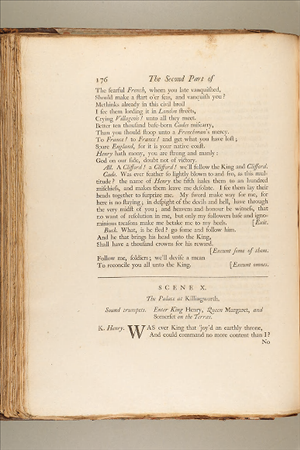 176 The Second Part of
The fearful French, whom you late vanquished,
Should make a start o'er seas, and vanquish you?
Methinks already in this civil broil
I see them lording it in London streets,
Crying Villageois! unto all they meet.
Better ten thousand base-born Cades miscarry,
Than you should stoop unto a Frenchman's mercy.
To France! to France! and get what you have lost;
Spare England, for it is your native coast.
Henry hath mony, you are strong and manly:
God on our side, doubt not of victory.
All. A Clifford! a Clifford! we'll follow the King and Clifford.
Cade. Was ever feather so lightly blown to and fro, as this mul-
titude? the name of Henry the fifth hales them to an hundred
mischiefs, and makes them leave me desolate. I see them lay their
heads together to surprize me. My sword make way for me, for
here is no staying; in despight of the devils and hell, have through
the very midst of you; and heavens and honour be witness, that
no want of resolution in me, but only my followers base and igno-
minious treasons make me betake me to my heels. [Exit.
Buck. What, is he fled? go some and follow him.
And he that brings his head unto the King,
Shall have a thousand crowns for his reward.
[Exeunt some of them.
Follow me, soldiers; we'll devise a mean
To reconcile you all unto the King. [Exeunt omnes.
SCENE X.
The Palace at Killingworth.
Sound trumpets. Enter King Henry, Queen Margaret, and
Somerset on the Terras.
K. Henry. WAS ever King that 'joy'd an earthly throne,
And could command no more content than I?
No